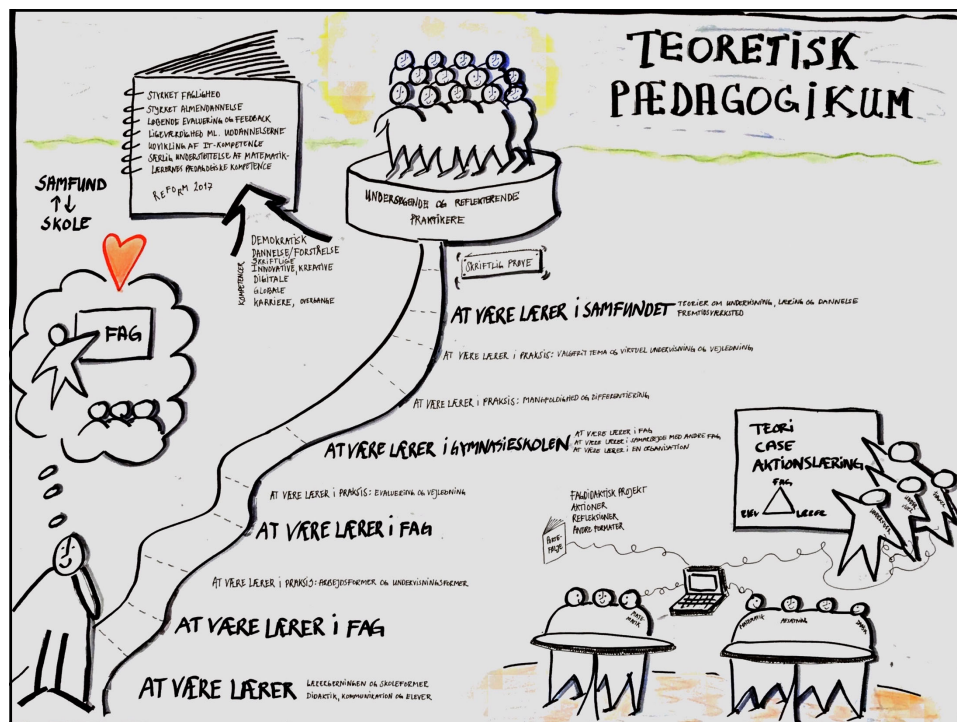 TEORETISK
PÆDAGOGIKUM
STYRKET FAGLIGHED
STYRKET ALMENDANNELSE
LØBENDE EVALUERING OG FEEDBACK
LIGEVÆRDIGHED ML. UDDANNELSERNE
UDVIKLING AF IT-KOMPETENCE
SÆRLIG UNDERSTØTTELSE AF MATEMATIK-
LÆRERNES PÆDAGOGISKE KOMPETENCE
REFORM 2017
SAMFUND
↑↓
SKOLE
FAG
KOMPETENCER
DEMOKRATISK
DANNELSE/FORSTÅELSE
SKRIFTLIGE
INNOVATIVE, KREATIVE
DIGITALE
GLOBALE
KARRIERE, OVERGANGE
UNDERSØGENDE OG REFLEKTERENDE
PRAKTIKERE
SKRIFTLIG PRØVE
AT VÆRE LÆRER I SAMFUNDET
TEORIER OM UNDERVISNING, LÆRING OG DANNELSE
FREMTIDSVÆRKSTED
AT VÆRE LÆRER I PRAKSIS: VALGFRIT TEMA OG VIRTUEL UNDERVISNING OG VEJLEDNING
AT VÆRE LÆRER I PRAKSIS: MANGFOLDIGHED OG DIFFERENTIERING
AT VÆRE LÆRER I GYMNASIESKOLEN
AT VÆRE LÆRER I FAG
AT VÆRE LÆRER I SAMARBEJDE MED ANDRE FAG
AT VÆRE LÆRER I EN ORGANISATION
AT VÆRE LÆRER I PRAKSIS: EVALUERING OG VEJLEDNING
AT VÆRE LÆRER I FAG
AT VÆRE LÆRER I PRAKSIS: ARBEJDSFORMER OG UNDERVISNINGSFORMER
AT VÆRE LÆRER I FAG
AT VÆRE LÆRER
LÆRERGERNINGEN OG SKOLEFORMER
DIDAKTIK, KOMMUNIKATION OG ELEVER
TEORI
CASE
AKTIONSLÆRING
FAG
ELEV
LÆRER
FAGDIDAKTISK PROJEKT
AKTIONER
REFLEKSIONER
ANDRE FORMATER
PORTE-
FØLJE
MATE
MATIK
MATEMATIK
DANSK